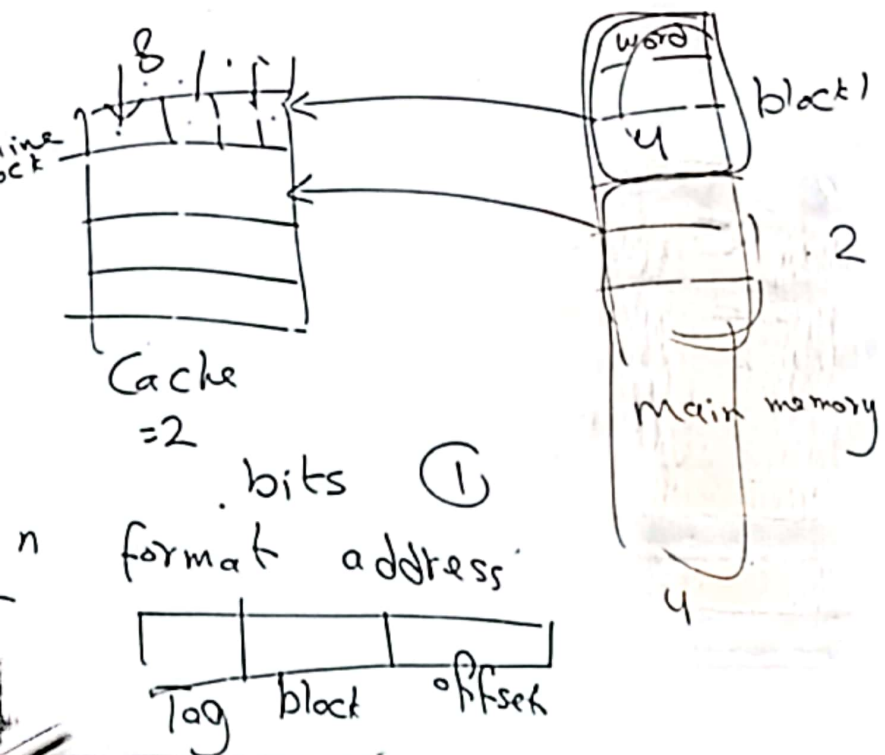 8
word
block1
4
2
Cache
=2
main memory
bits ①
n format address
4
Tag block offset